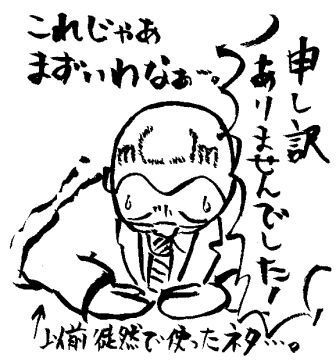 これじゃあ
まずいわなぁ…。
申し訳
ありませんでした!
↑以前徒然で使ったネタ…。